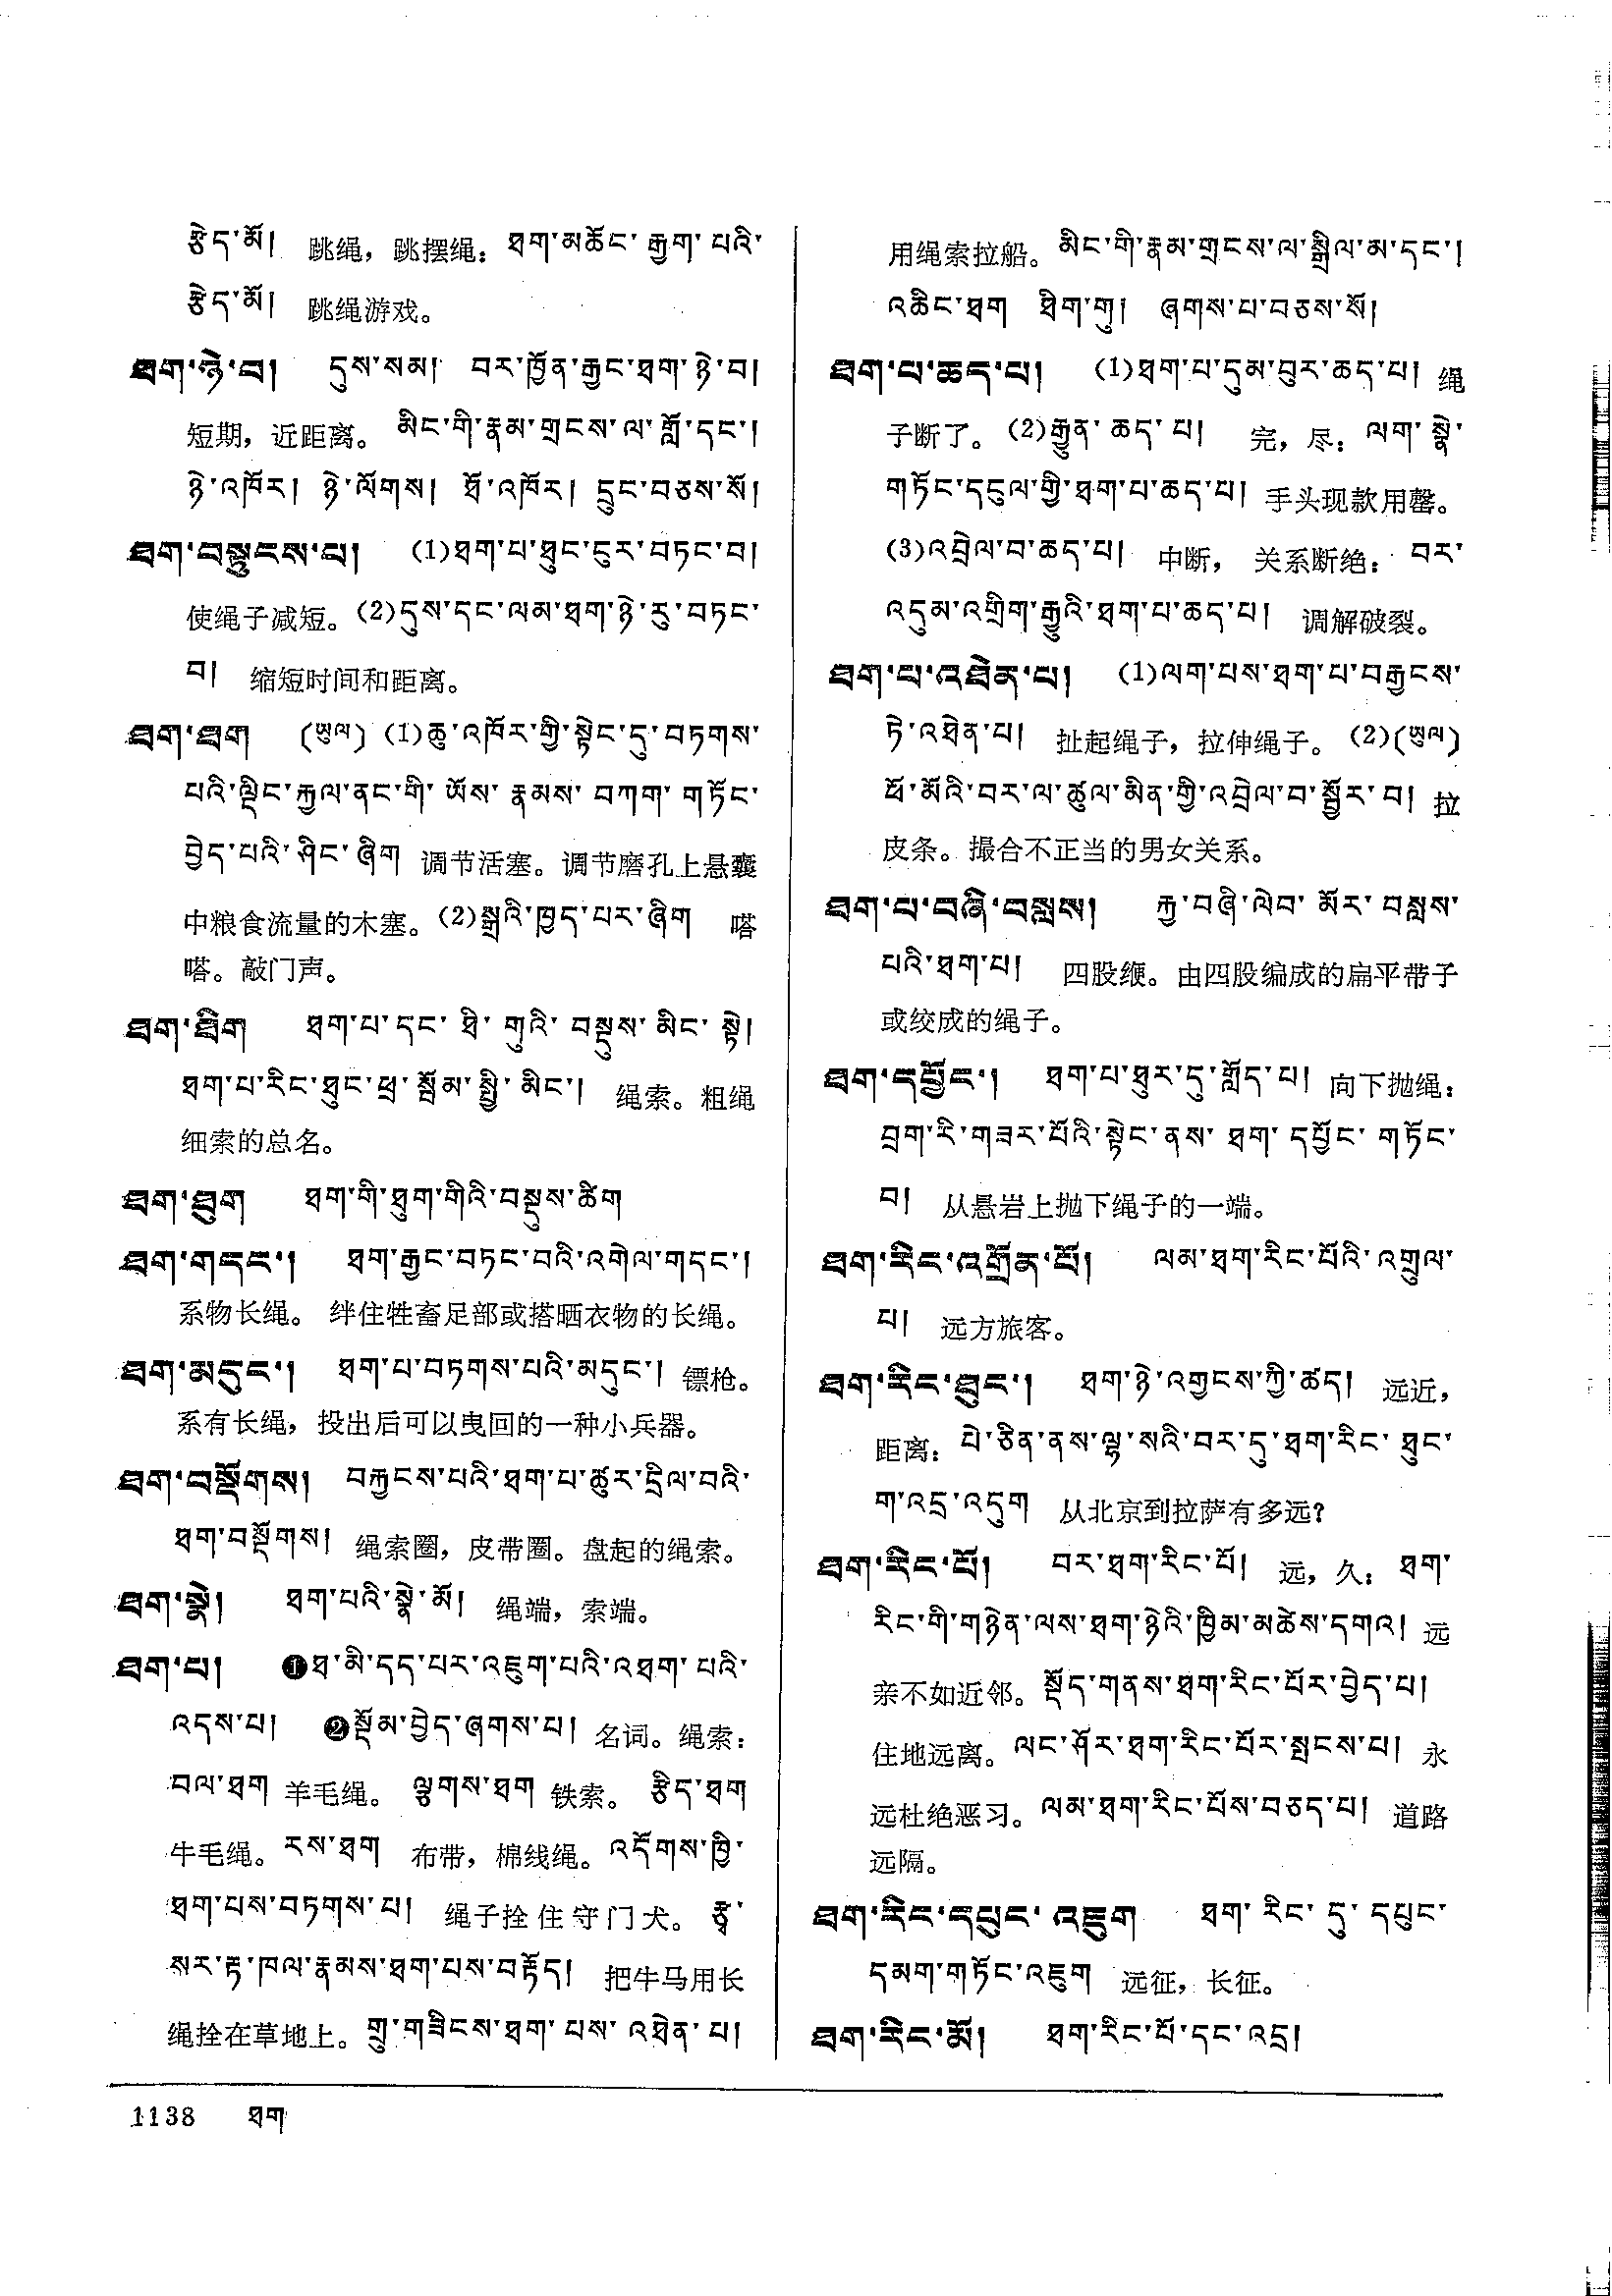 རྩེད་མོ། 跳绳，跳摆绳：ཐག་མཆོང་རྒྱག་པའི་
རྩེད་མོ། 跳绳游戏。
ཐག་ཉེ་བ། དུས་སམ། བར་ཁྱོན་རྒྱང་ཐག་ཉེ་བ།
短期，近距离。མིང་གི་རྣམ་གྲངས་ལ་གློ་དང་།
ཉེ་འཁོར། ཉེ་ལོགས། ཐོ་འཁོར། དྲུང་བཅས་སོ།
ཐག་བསྟུངས་པ། (1)ཐག་པ་ཐུང་ངུར་བཏང་བ།
使绳子减短。(2)དུས་དང་ལམ་ཐག་ཉེ་རུ་བཏང་
བ། 缩短时间和距离。
ཐག་ཐག (ཡུལ) (1)ཆུ་འཁོར་གྱི་སྟེང་དུ་བཏགས་
པའི་ལྡིང་རྐྱལ་ནང་གི་ཡོས་རྣམས་བཀག་གཏོང་
བྱེད་པའི་ཤིང་ཞིག 调节活塞。调节磨孔上悬囊
中粮食流量的木塞。(2)སྒྲའི་ཁྱད་པར་ཞིག 嗒
嗒。敲门声。
ཐག་ཐིག ཐག་པ་དང་ཐི་གུའི་བསྡུས་མིང་སྟེ།
ཐག་པ་རིང་ཐུང་ཕྲ་སྦོམ་སྤྱི་མིང་། 绳索。粗绳
细索的总名。
ཐག་ཐུག ཐག་གི་ཐུག་གིའི་བསྡུས་ཚིག
ཐག་གདང་། ཐག་རྒྱང་བཏང་བའི་འགེལ་གདང་།
系物长绳。 绊住牲畜足部或搭晒衣物的长绳。
ཐག་མདུང་། ཐག་པ་བཏགས་པའི་མདུང་། 镖枪。
系有长绳，投出后可以曳回的一种小兵器。
ཐག་བསྡོགས། བརྐྱངས་པའི་ཐག་པ་ཚུར་དྲིལ་བའི་
ཐག་བསྡོགས། 绳索圈，皮带圈。盘起的绳索。
ཐག་སྣེ། ཐག་པའི་སྣེ་མོ། 绳端，索端。
ཐག་པ། ❶ཐ་མི་དད་པར་འཇུག་པའི་འཐག་པའི་
འདས་པ། ❷སྡོམ་བྱེད་ཞགས་པ། 名词。绳索：
བལ་ཐག 羊毛绳。 ལྕགས་ཐག 铁索。 རྩིད་ཐག
牛毛绳。རས་ཐག 布带，棉线绳。འདོགས་ཁྱི་
ཐག་པས་བཏགས་པ། 绳子拴住守门犬。 རྩྭ་
སར་རྟ་ཁལ་རྣམས་ཐག་པས་བརྟོད། 把牛马用长
绳拴在草地上。གྲུ་གཟིངས་ཐག་པས་འཐེན་པ།
用绳索拉船。མིང་གི་རྣམ་གྲངས་ལ་སྒྲིལ་མ་དང་།
འཆིང་ཐག ཐིག་གུ། ཞགས་པ་བཅས་སོ།
ཐག་པ་ཆད་པ། (1)ཐག་པ་དུམ་བུར་ཆད་པ། 绳
子断了。(2)རྒྱུན་ཆད་པ། 完，尽：ལག་སྣེ་
གཏོང་དངུལ་གྱི་ཐག་པ་ཆད་པ། 手头现款用罄。
(3)འབྲེལ་བ་ཆད་པ། 中断， 关系断绝：བར་
འདུམ་འགྲིག་རྒྱུའི་ཐག་པ་ཆད་པ། 调解破裂。
ཐག་པ་འཐེན་པ། (1)ལག་པས་ཐག་པ་བརྒྱངས་
ཏེ་འཐེན་པ། 扯起绳子，拉伸绳子。(2)(ཡུལ)
ཕོ་མོའི་བར་ལ་ཚུལ་མིན་གྱི་འབྲེལ་བ་སྦྱོར་བ། 拉
皮条。撮合不正当的男女关系。
ཐག་པ་བཞི་བསླས། རྐྱ་བཞི་ལེབ་མོར་བསླས་
པའི་ཐག་པ། 四股缏。由四股编成的扁平带子
或绞成的绳子。
ཐག་དཔྱོང་། ཐག་པ་ཐུར་དུ་གློད་པ། 向下抛绳：
བྲག་རི་གཟར་པོའི་སྟེང་ནས་ཐག་དཔྱོང་གཏོང་
བ། 从悬岩上抛下绳子的一端。
ཐག་རིང་འགྲོན་པོ། ལམ་ཐག་རིང་པོའི་འགྲུལ་
པ། 远方旅客。
ཐག་རིང་ཐུང་། ཐག་ཉེ་འགྱངས་ཀྱི་ཚད། 远近，
距离：པེ་ཅིན་ནས་ལྷ་སའི་བར་དུ་ཐག་རིང་ཐུང་
ག་འདྲ་འདུག 从北京到拉萨有多远?
ཐག་རིང་པོ། བར་ཐག་རིང་པོ། 远，久：ཐག་
རིང་གི་གཉེན་ལས་ཐག་ཉེའི་ཁྱིམ་མཚེས་དགའ། 远
亲不如近邻。སྡོད་གནས་ཐག་རིང་པོར་བྱེད་པ།
住地远离。ལང་ཤོར་ཐག་རིང་པོར་སྤངས་པ། 永
远杜绝恶习。ལམ་ཐག་རིང་པོས་བཅད་པ། 道路
远隔。
ཐག་རིང་དཔུང་འཇུག ཐག་རིང་དུ་དཔུང་
དམག་གཏོང་འཇུག 远征，长征。
ཐག་རིང་མོ། ཐག་རིང་པོ་དང་འདྲ།
1138 ཐག